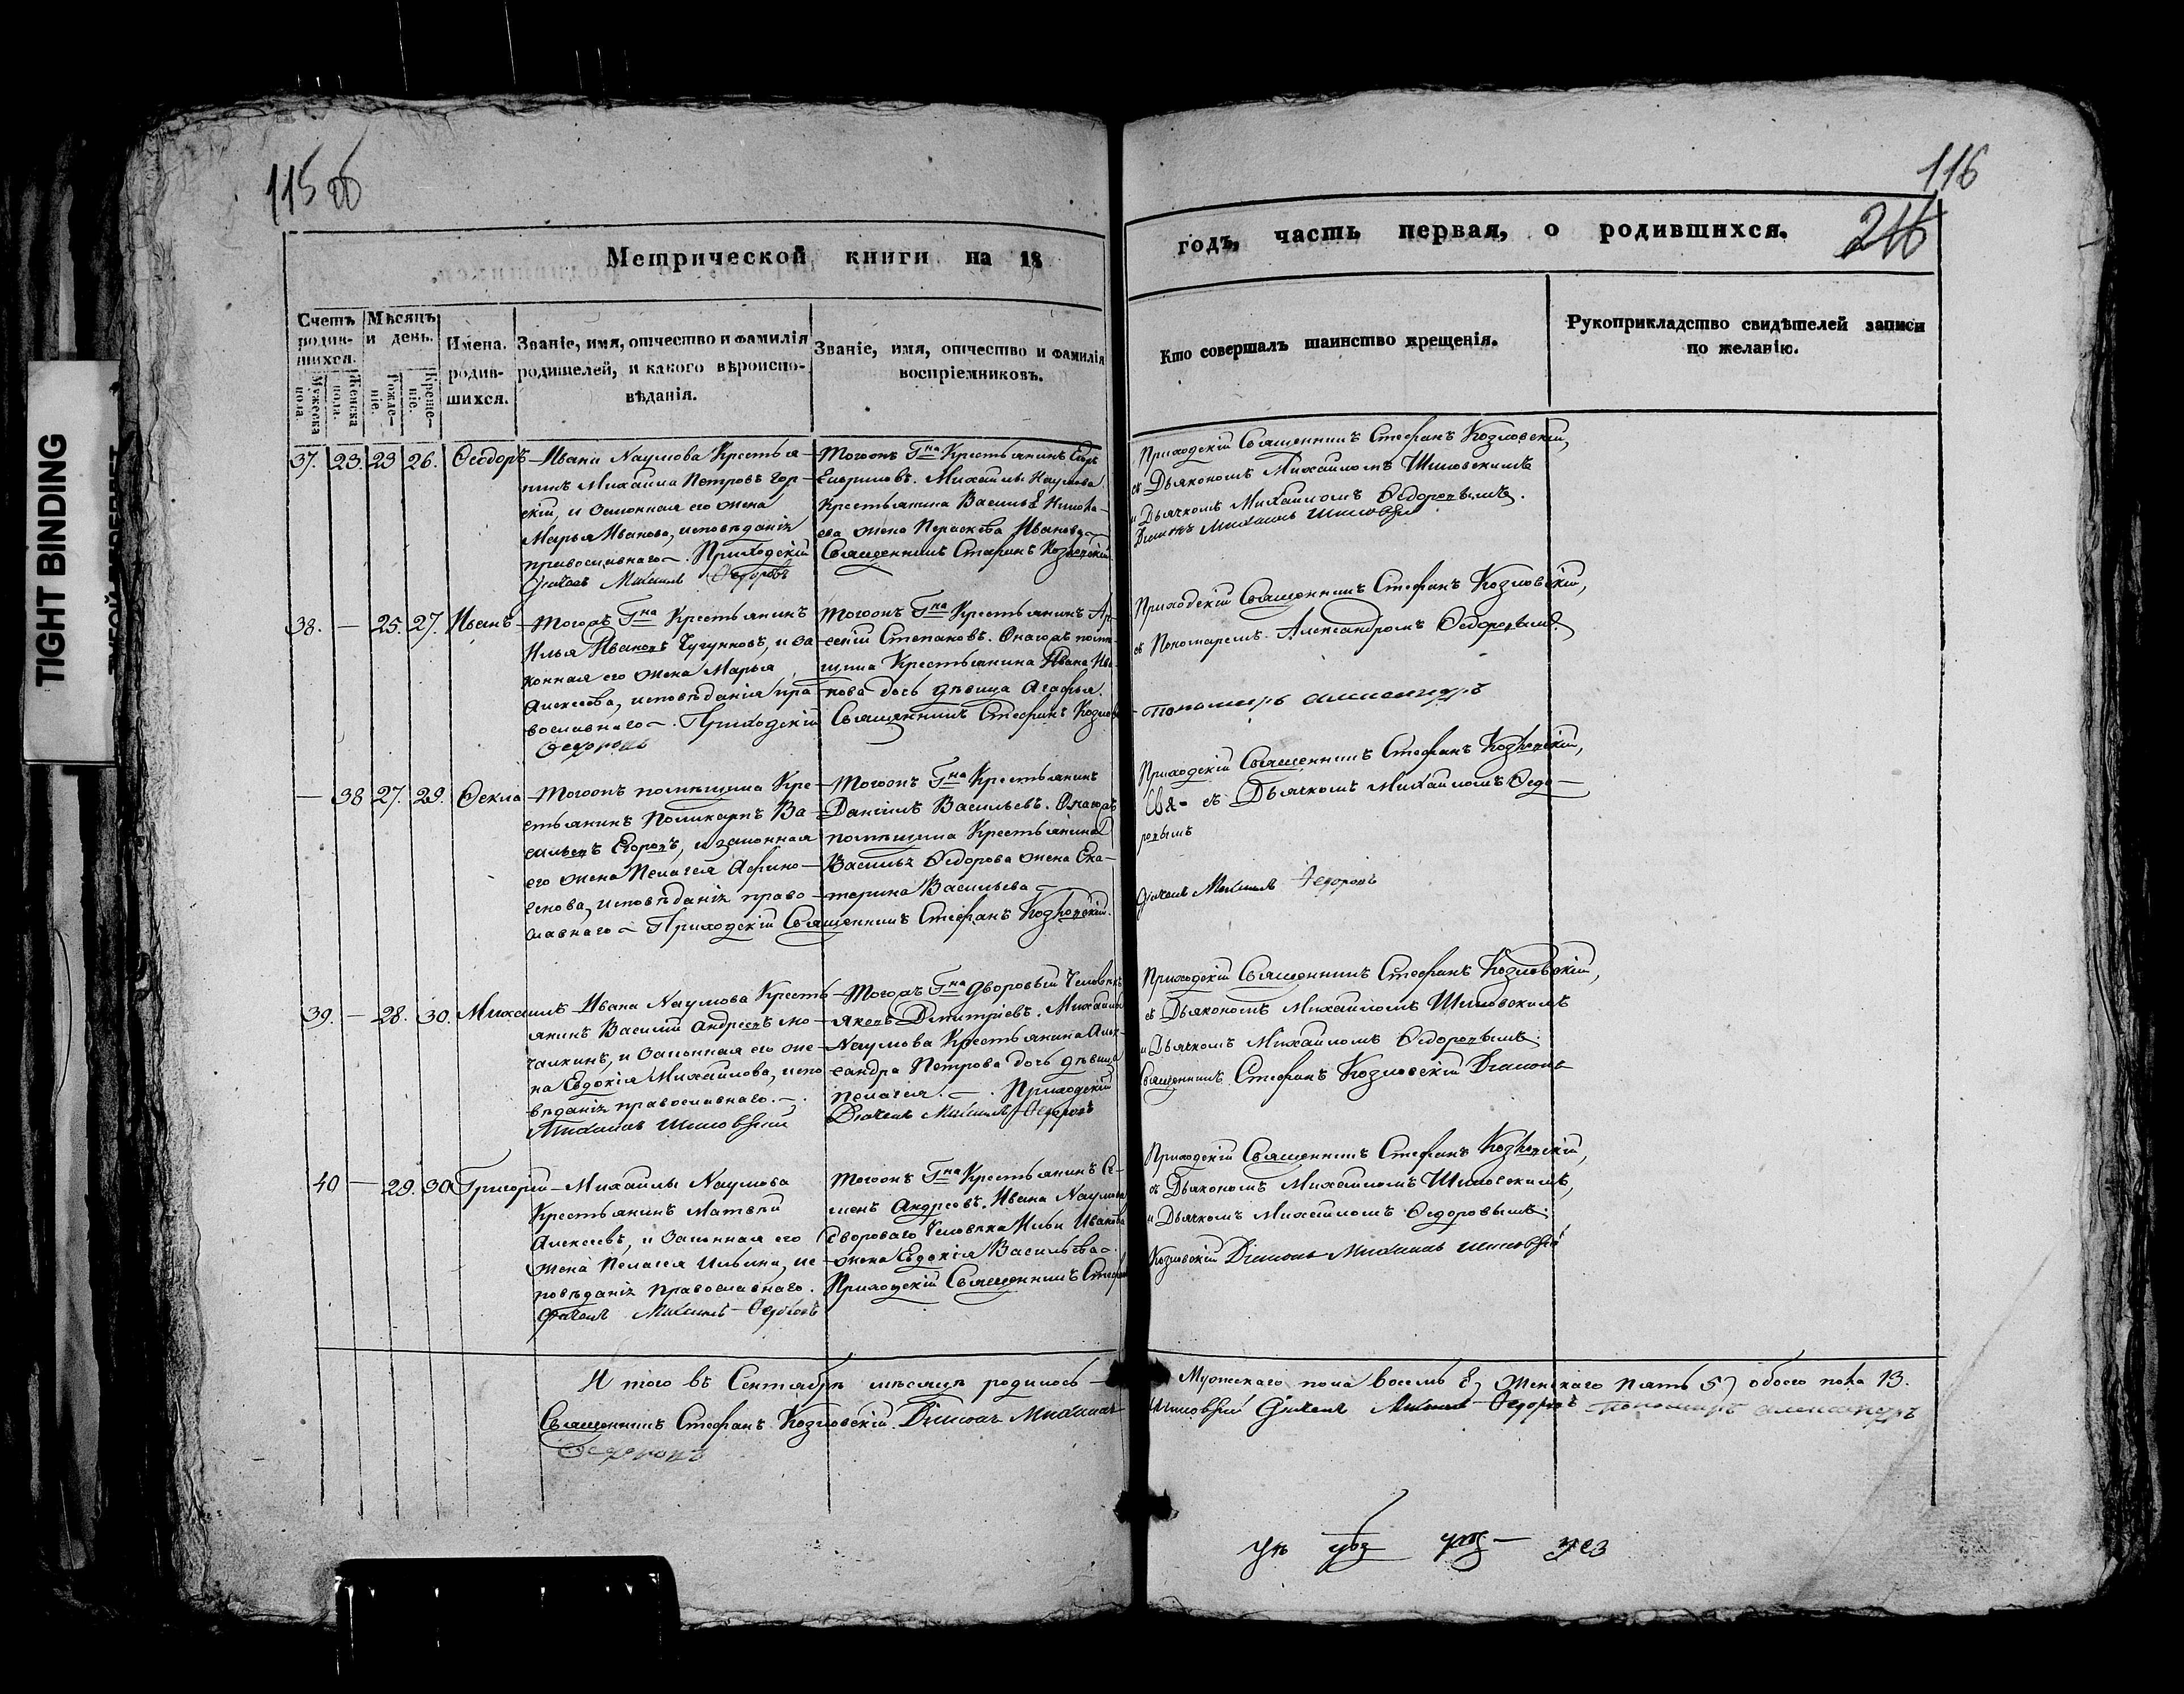 115 об
116
216
Метрической книги на 18
годъ, часть первая, о родившихся.
Счетъ родив-шихся.
Мужеска пола.
Женска пола.
Мѣсяцъ и день.
Рожде-ніе.
Креще-ніе.
Имена родив-шихся.
Званіе, имя, отчество и фамилія
родителей, и какого вѣроиспо-
вѣданія.
Званіе, имя, отчество и фамилія
воспріемниковъ.
Кто совершалъ таинство крещенія.
Рукоприкладство свидѣтелей записи
по желанію.
37. 23. 23 26. Ѳеодоръ
Ивана Наумова Крестья-
нинъ Михаила Петровъ Гор-
скій, и Законная его жена
Марья Иванова, исповѣданія
православнаго. Приходскій
Дьячекъ Михаилъ Ѳедоровъ
Тогожъ Гна Крестьянинъ
Михайлы Наумова
Крестьянина Василья
жена Параскева Иванова
Священникъ Стефанъ Козловскій
Приходскій Священникъ Стефанъ Козловскій,
съ Дьякономъ Михайломъ Шиловскимъ
и Дьячкомъ Михайломъ Ѳедоровымъ.
Діаконъ Михаилъ Шиловскій
38. — 25. 27. Иванъ
Тогожъ Гна Крестьянинъ
Илья Ивановъ Чугунковъ, и За
конная его жена Марья
Алексѣева, исповѣданія пра
вославнаго. Приходскій
Ѳедоровъ
Тогожъ Гна Крестьянинъ Ар-
сеній Степановъ. Онагожъ помѣ-
щика Крестьянина Ивана Ива-
нова дочь дѣвица Агафья.
Священникъ Стефанъ Козлов
Приходскій Священникъ Стефанъ Козловскій,
съ Пономаремъ Александромъ Ѳедоровымъ.
Пономарь Александръ
— 38 27. 29. Ѳекла
Тогожъ помѣщика Кре-
стьянинъ Поликарпъ Ва-
сильевъ Егоровъ, и законная
его жена Пелагея Афино-
генова, исповѣданія право-
славнаго Приходскій Священникъ Стефанъ Козловскій.
Тогожъ Гна Крестьянинъ
Даніилъ Васильевъ. Онагожъ
помѣщика Крестьянина
Василья Ѳедорова жена Ека-
терина Васильева
Приходскій Священникъ Стефанъ Козловскій,
съ Дьячкомъ Михайломъ Ѳедо-
ровымъ
Дьячекъ Михаилъ Ѳедоровъ
39. — 28. 30. Михаилъ
Ивана Наумова Кресть
янинъ Василій Андреевъ Мо-
чалкинъ, и Законная его же-
на Евдокія Михайлова, испо
вѣданія православнаго.
Михаилъ Шиловскій
Тогожъ Гна дворовый Человѣкъ
Яковъ Дмитріевъ. Михайлы
Наумова Крестьянина Алек-
сандра Петрова дочь дѣвица
Пелагея. Приходскій
Дьячекъ Михаилъ Ѳедоровъ
Приходскій Священникъ Стефанъ Козловскій,
съ Дьякономъ Михайломъ Шиловскимъ
и Дьячкомъ Михайломъ Ѳедоровымъ.
Священникъ Стефанъ Козловскій Діаконъ
40 — 29. 30 Григорій
Михайлы Наумова
Крестьянинъ Матвей
Алексеевъ, и Законная его
жена Пелагея Ильина, ис
повѣданія православнаго.
Дьячекъ Михаилъ Ѳедоровъ
Тогожъ Гна Крестьянинъ Се-
менъ Андреевъ. Ивана Наумова
двороваго Человѣка Ильи Иванова
жена Евдокія Васильева.
Приходскій Священникъ Стефанъ
Приходскій Священникъ Стефанъ Козловскій,
съ Дьякономъ Михайломъ Шиловскимъ,
и Дьячкомъ Михайломъ Ѳедоровымъ.
Козловскій Діаконъ Михаилъ Шиловскій
И того въ Сентябрѣ мѣсяцѣ родилось —
Мужскаго пола восемь 8, Женскаго пять 5, обоего пола 13.
Священникъ Стефанъ Козловскій. Діаконъ Михаилъ
Шиловскій Дьячекъ Михаилъ Ѳедоровъ Пономарь Александръ
Ѳедоровъ
TIGHT BINDING